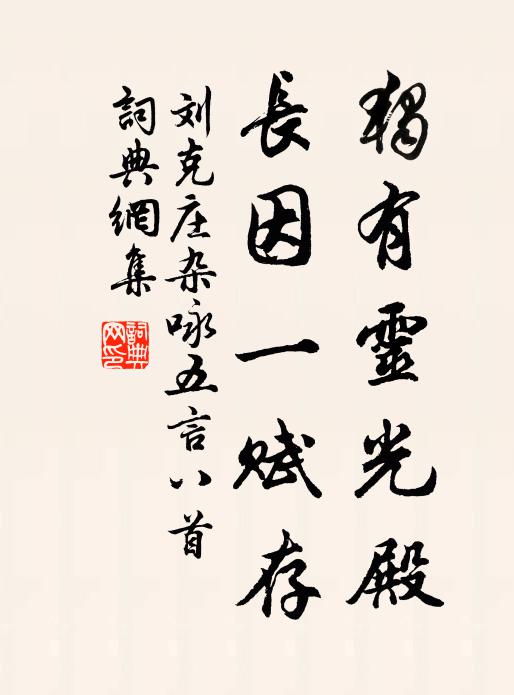 獨有靈光殿
長因一賦存
刘克庄杂咏五言八首
詞典網集
詞典
网印